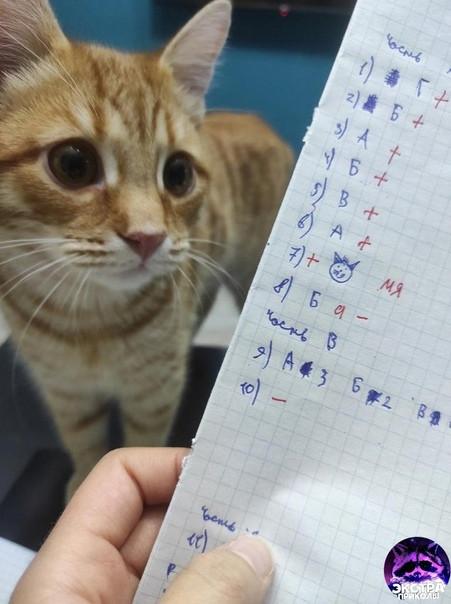 Часть
1) Г +
2) Б +
3) А +
4) Б +
5) В +
6) А +
7) + МЯ
8) Б а -
Часть В
9) А 3 Б 2 В
10) -
Часть
11)
ЭКСТРА
ПРИКОЛЫ